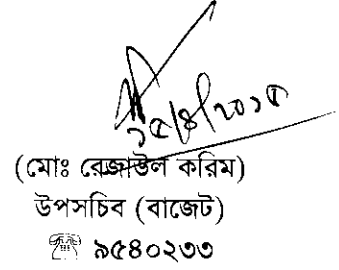 ১৫/৪/২০১৫
(মোঃ রেজাউল করিম)
উপসচিব (বাজেট)
☎ ৯৫৪০২৩৩